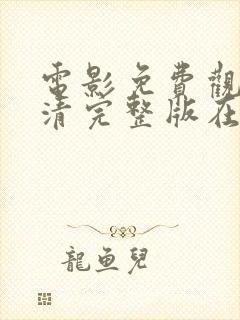 電影免費觀
清完整版在
龍鱼兒